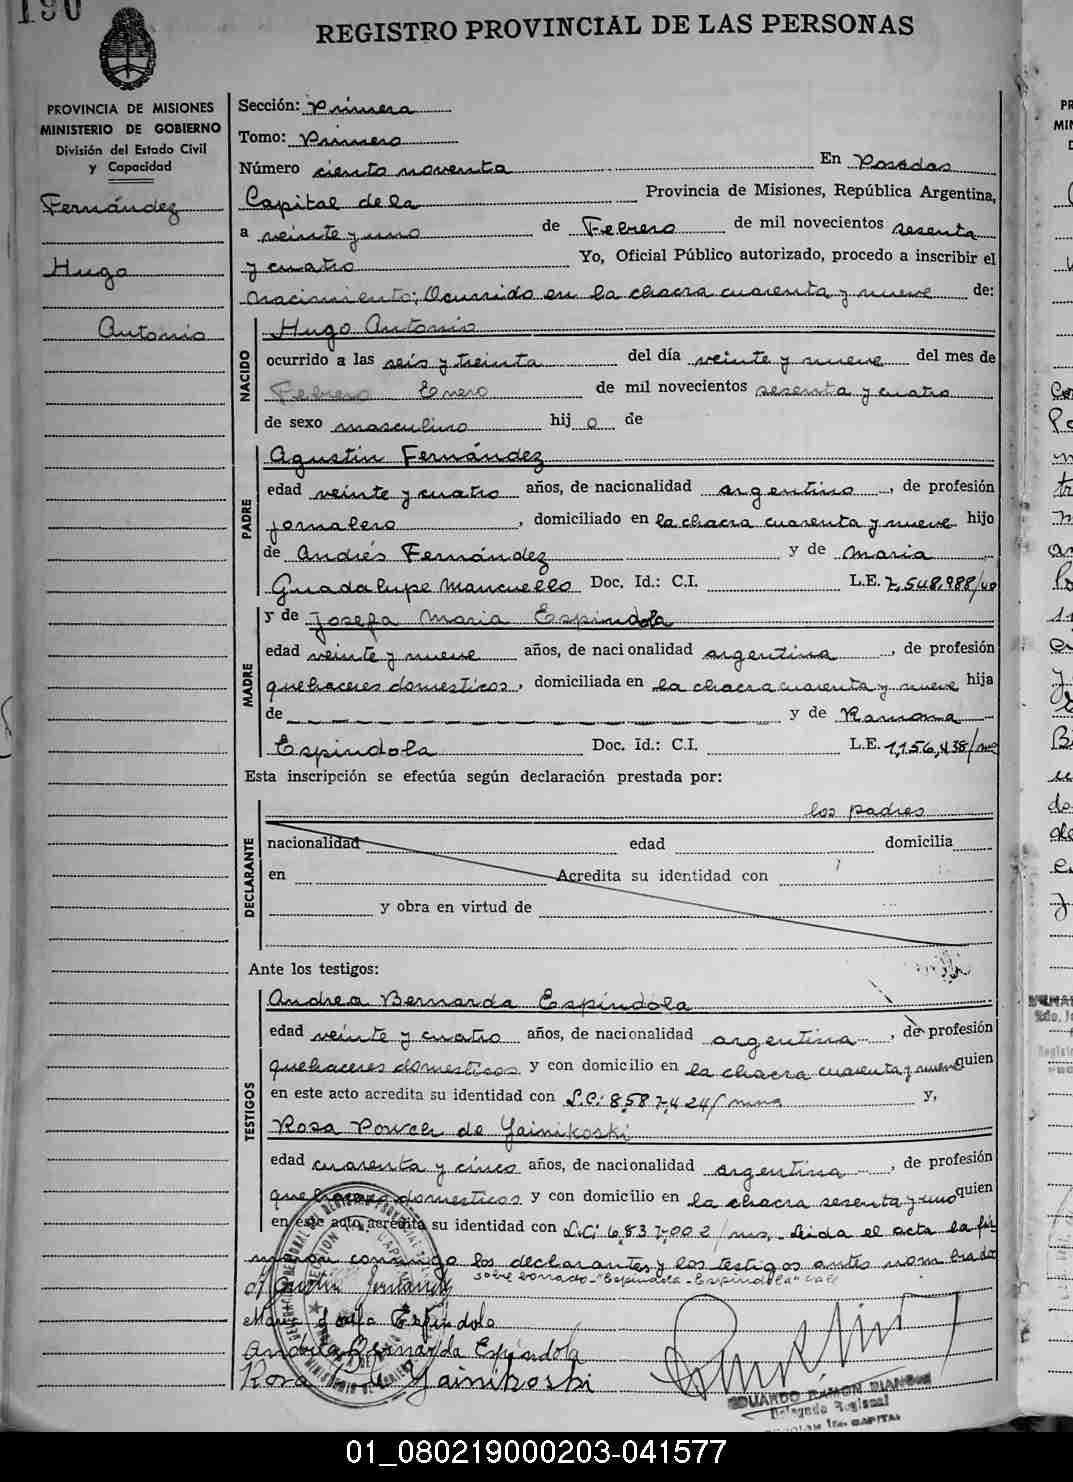 190
REGISTRO PROVINCIAL DE LAS PERSONAS
PROVINCIA DE MISIONES
MINISTERIO DE GOBIERNO
División del Estado Civil
y Capacidad
Fernández
Hugo
Antonio
Sección: Primera
Tomo: Primero
Número ciento noventa En Posadas
Capital de la Provincia de Misiones, República Argentina,
a veinte y uno de Febrero de mil novecientos sesenta
y cuatro Yo, Oficial Público autorizado, procedo a inscribir el
nacimiento; Ocurrido en la chacra cuarenta y nueve de:
NACIDO
Hugo Antonio
ocurrido a las seis y treinta del día veinte y nueve del mes de
Febrero Enero de mil novecientos sesenta y cuatro
de sexo masculino hij o de
PADRE
Agustin Fernández
edad veinte y cuatro años, de nacionalidad argentino, de profesión
jornalero, domiciliado en la chacra cuarenta y nueve hijo
de Andrés Fernández y de Maria
Guadalupe Mancuello Doc. Id.: C.I. L.E. 7,548,988/
MADRE
y de Josefa Maria Espindola
edad veinte y nueve años, de nacionalidad argentina, de profesión
quehaceres domesticos, domiciliada en la chacra cuarenta y nueve hija
de y de Ramona
Espindola Doc. Id.: C.I. L.E. 1,156,438/
Esta inscripción se efectúa según declaración prestada por:
DECLARANTE
los padres
nacionalidad edad domicilia
en Acredita su identidad con
y obra en virtud de
Ante los testigos:
TESTIGOS
Andrea Bernarda Espindola
edad veinte y cuatro años, de nacionalidad argentina, de profesión
quehaceres domesticos y con domicilio en la chacra cuarenta y nueve quien
en este acto acredita su identidad con L.C: 8,587,424/ y,
Rosa de Gainikoski
edad cuarenta y cinco años, de nacionalidad argentina, de profesión
quehaceres domesticos y con domicilio en la chacra sesenta y uno quien
en este acto acredita su identidad con L.C: 6,837,002/ Leida el acta la fir
maron conmigo los declarantes y los testigos antes nombrados
sobre borrado "Espindola-Espindola" vale
Maria Josefa Espíndola
Andrea Bernarda Espíndola
Rosa de Gainikoski
EDUARDO RAMON
Delegado Regional
CAPITAL
01_080219000203-041577